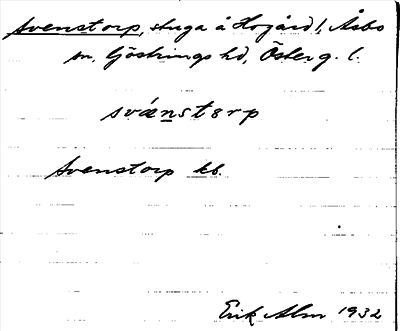 Svenstorp, stuga å Hogård 1, Åsbo
sn. Göstrings hd, Österg. l.
svänstorp
Svenstorp kb.
Erik Alm 1932